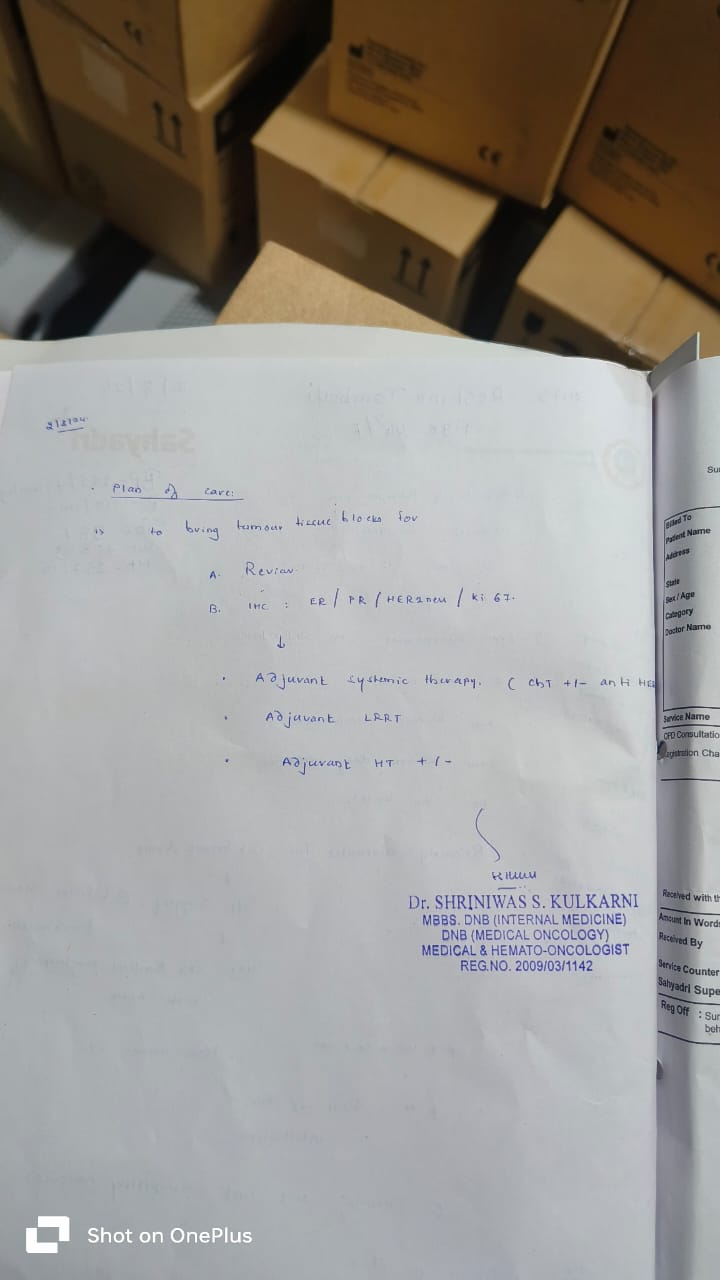 2/8/24.
Plan of care:
1> to bring tumour tissue blocks for
A. Review
B. IHC : ER / PR / HER2neu / ki 67.
↓
• Adjuvant systemic therapy. ( ChT +/- anti HER
• Adjuvant LRRT
• Adjuvant HT +/-
Dr. SHRINIWAS S. KULKARNI
MBBS. DNB (INTERNAL MEDICINE)
DNB (MEDICAL ONCOLOGY)
MEDICAL & HEMATO-ONCOLOGIST
REG.NO. 2009/03/1142
Su
Billed To
Patient Name
Address
State
Sex / Age
Category
Doctor Name
Service Name
OPD Consultatio
Registration Cha
Received with th
Amount In Words
Received By
Service Counter
Sahyadri Supe
Reg Off : Sur
beh
Sahyadri
CE
CE
Shot on OnePlus